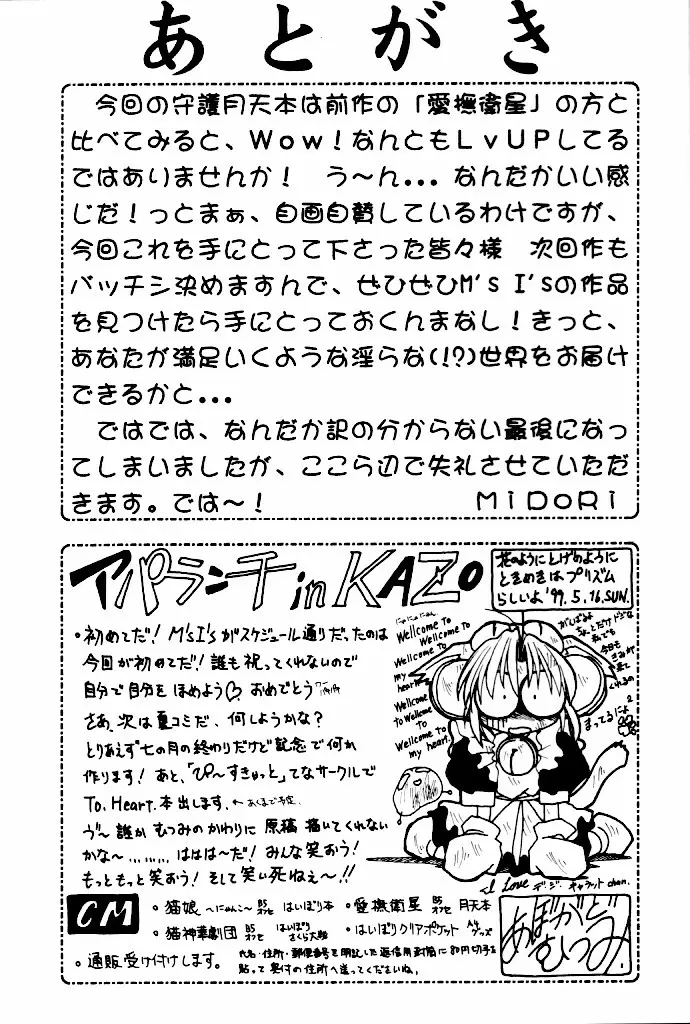 あとがき
今回の守護月天本は前作の「愛撫衛星」の方と
比べてみると、Wow！なんともLvUPしてる
ではありませんか！　う～ん...なんだかいい感
じだ！っとまぁ、自画自賛しているわけですが、
今回これを手にとって下さった皆々様　次回作も
バッチシ決めますんで、ぜひぜひM's I'sの作品
を見つけたら手にとっておくんまなし！きっと、
あなたが満足いくような淫らな(!?)世界をお届け
できるかと...
ではでは、なんだか訳の分からない最後になっ
てしまいましたが、ここら辺で失礼させていただ
きます。では～！　MiDoRi
アパランチ in KAZo
花のようにとげのように
ときめきはプリズム
らしいよ '99. 5. 16. SUN.
・初めてだ! M'sI'sがスケジュール通りだったのは
今回が初めてだ! 誰も祝ってくれないので
自分で自分をほめよう♡ おめでとう
さあ、次は夏コミだ、何しようかな?
とりあえず七の月の終わりだけど記念で何か
作ります! あと、「ぴ～すきゅっと」てなサークルで
To. Heart. 本出します. ←あくまで予定.
う"～ 誰か むつみのかわりに 原稿 描いてくれない
かな～ ......... ははは～だ! みんな笑おう!
もっともっと笑おう! そして笑い死ねぇ～!!
にゃんにゃん
Wellcome To
Wellcome To
Wellcome To
my heart
Wellcome
To Wellcome To
Wellcome To
my heart.
がんばるよ
ちょとだけドジな
私でも
今日も
きみが
来て
くれるの
まってるによ
I Love デ・ジ・キャラット chan.
CM
・猫娘 ～にゃんこ～ B5 オフセ はいぱり本
・愛撫衛星 B5 オフセ 月天本
・猫神華劇団 B5 オフセ はいぱり さくら大戦
・はいぱりクリアポケット A4 グッズ
・通販受け付けします。
氏名・住所・郵便番号を明記した返信用封筒に80円切手を
貼って奥付の住所へ送ってくださいね.
あぼがど
むつみ!